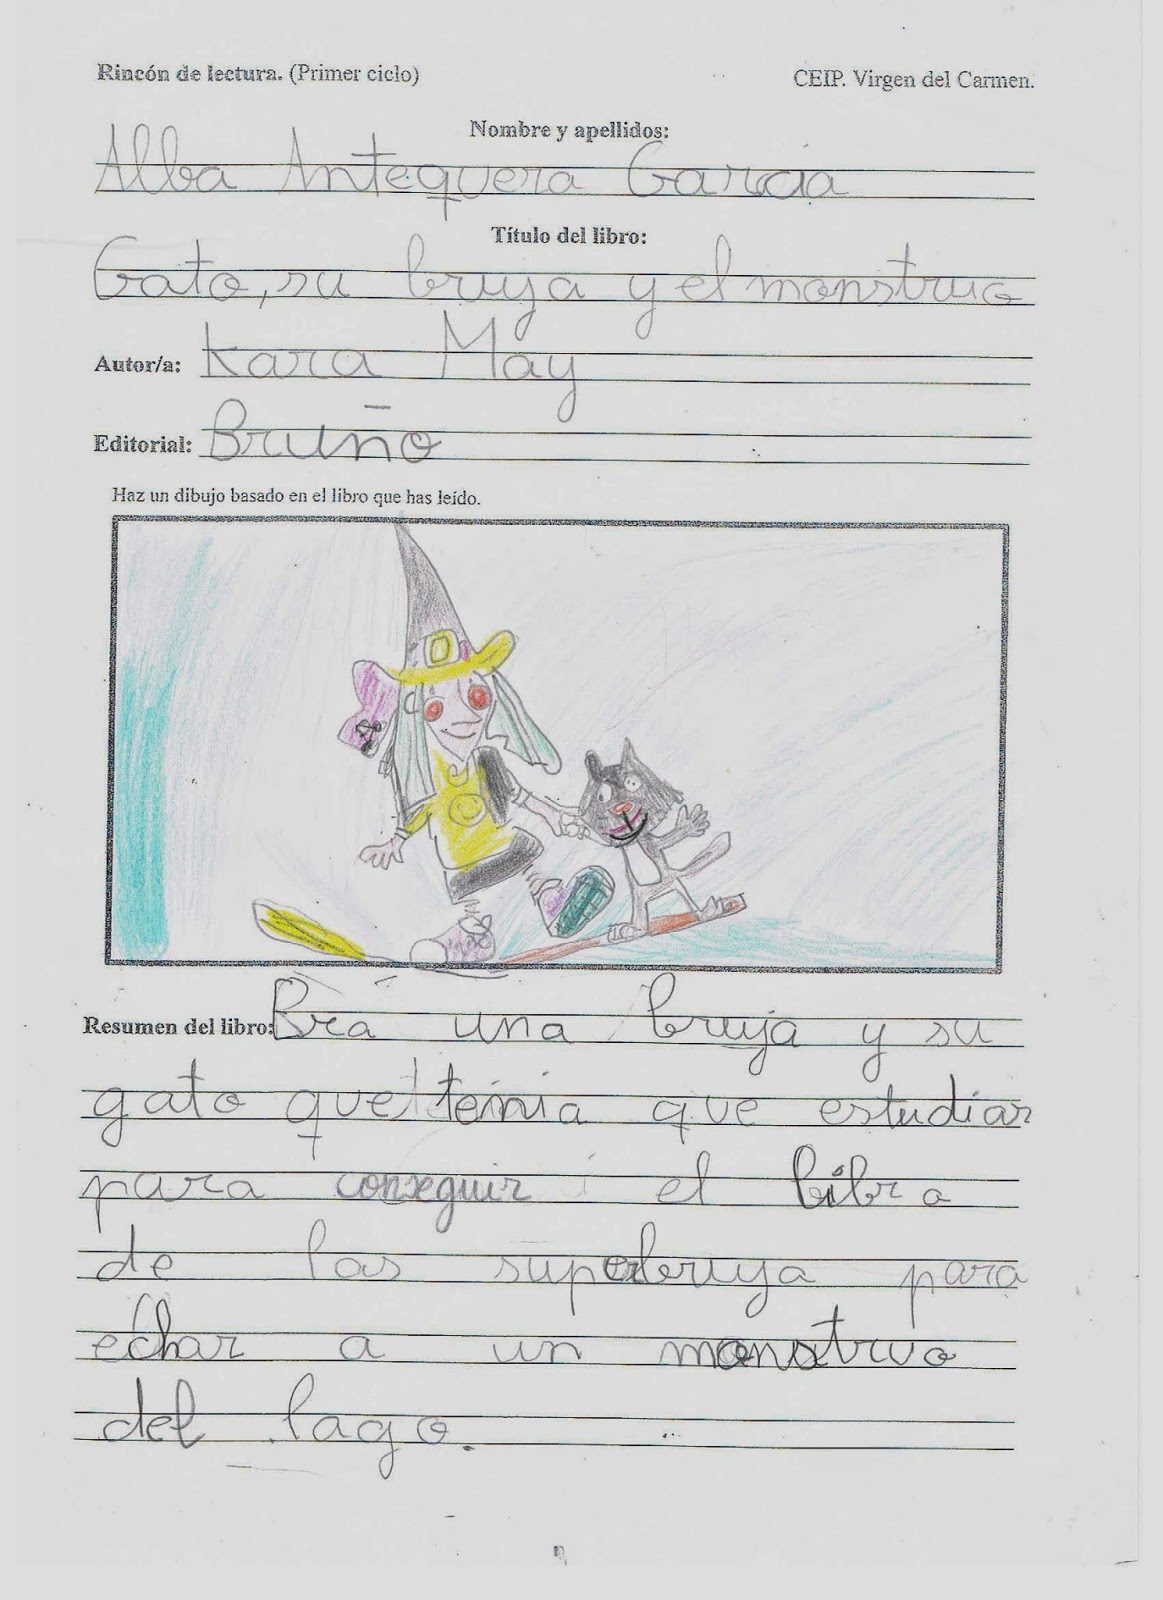 Rincón de lectura. (Primer ciclo)
CEIP. Virgen del Carmen.
Nombre y apellidos:
Alba Antequera Garcia
Título del libro:
Gato, su bruja y el monstruo
Autor/a: Kara May
Editorial: Bruño
Haz un dibujo basado en el libro que has leído.
Resumen del libro: Era una bruja y su
gato que tenia que estudiar
para conseguir el libro
de las superbruja para
echar a un monstruo
del lago.